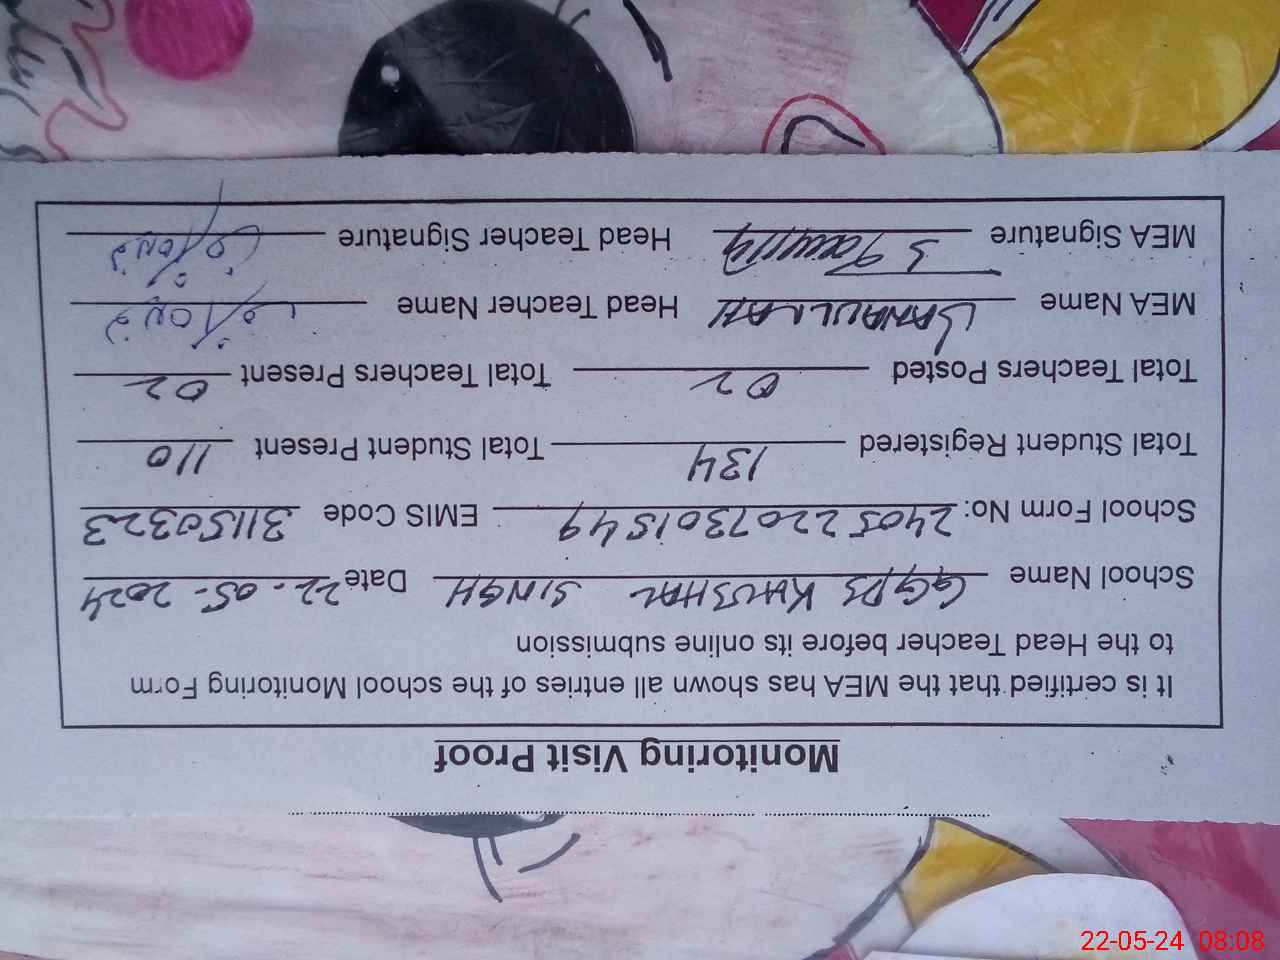 Monitoring Visit Proof
It is certified that the MEA has shown all entries of the school Monitoring Form
to the Head Teacher before its online submission
School Name GGPS KHUSHAL SINGH Date 22-05-2024
School Form No: 24052207301549 EMIS Code 31150323
Total Student Registered 134 Total Student Present 110
Total Teachers Posted 02 Total Teachers Present 02
MEA Name SANAULLAH Head Teacher Name
MEA Signature Head Teacher Signature
22-05-24 08:08